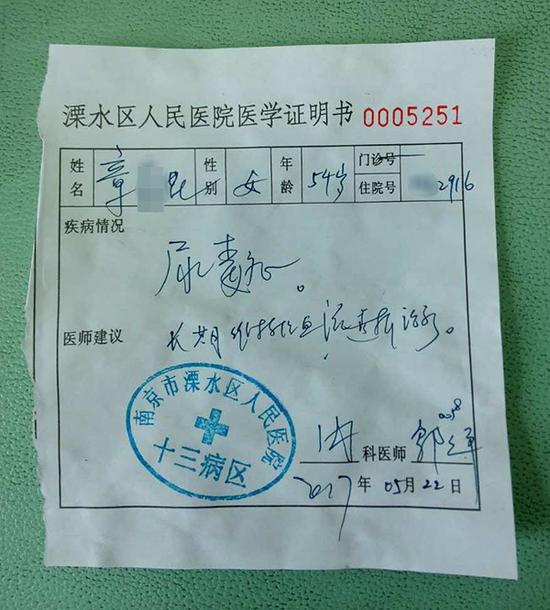 溧水区人民医院医学证明书 0005251
姓名 章 性别 女 年龄 54岁 门诊号 住院号 2916
疾病情况
尿毒症。
医师建议 长期维持性血液透析治疗。
南京市溧水区人民医院
十三病区
内 科医师 郭
2017年05月22日